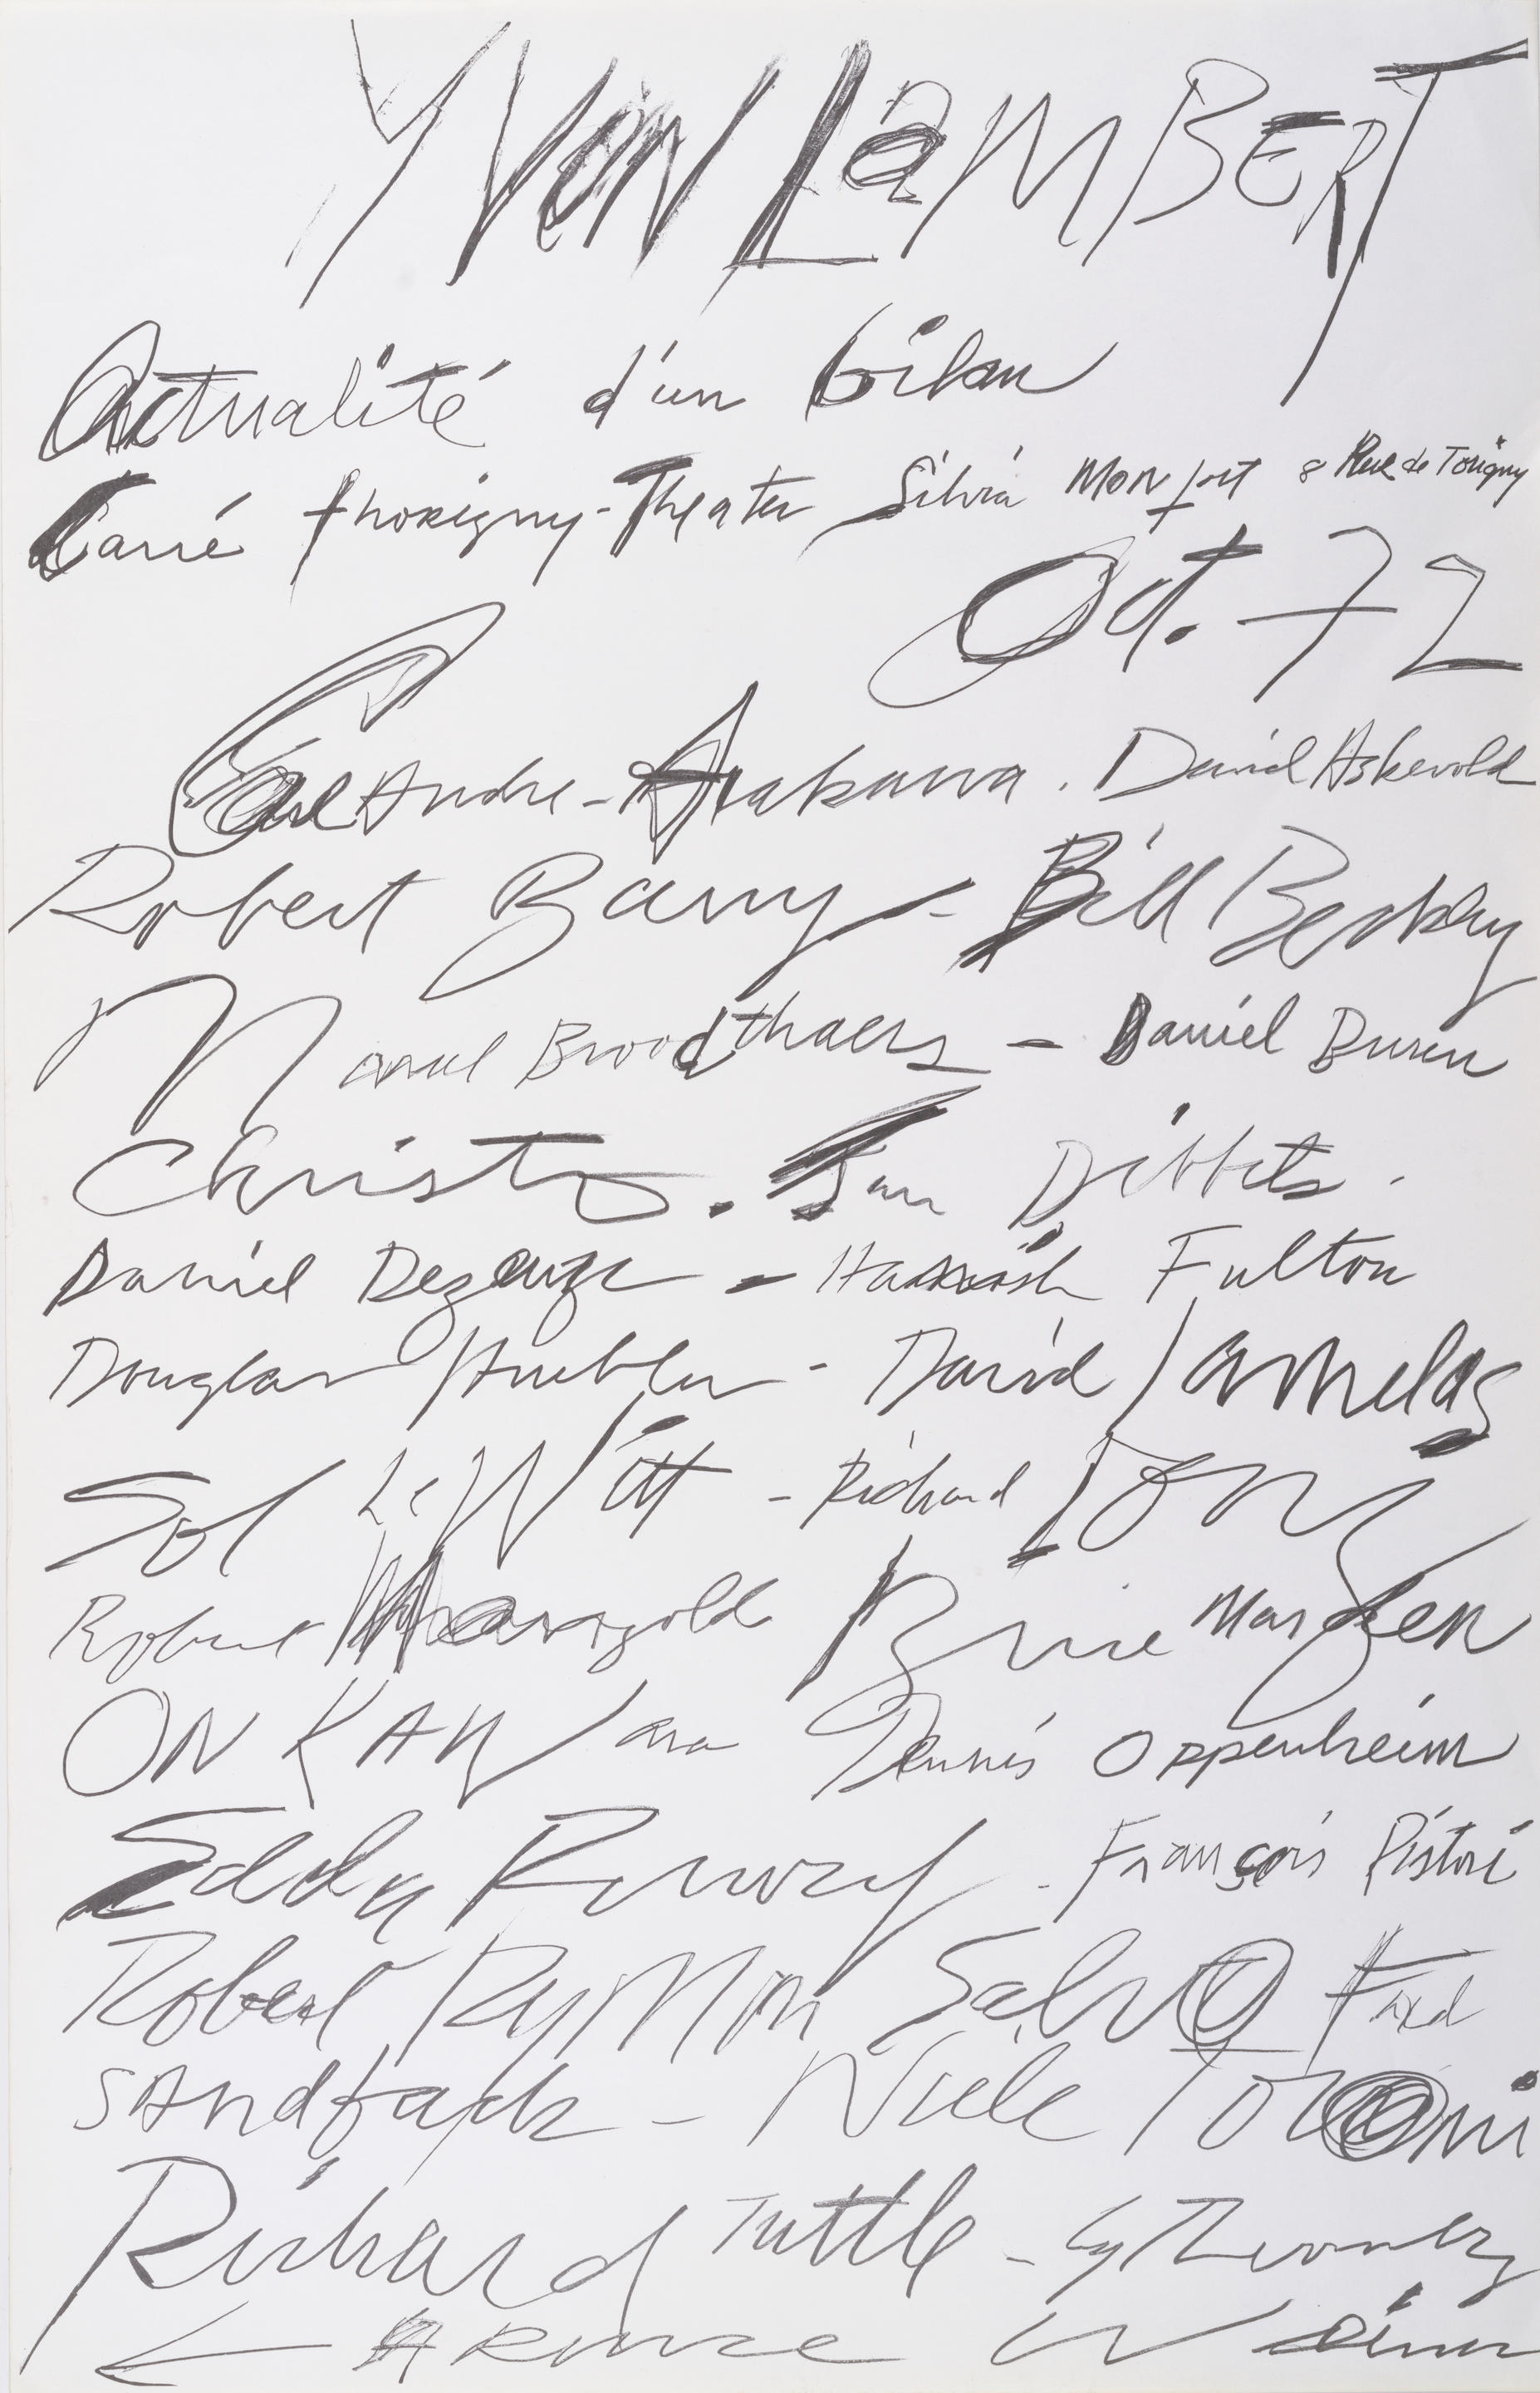 YVON LAMBERT
Actualité d'un bilan
Carré Thorigny-Theater Silvia Monfort 8 Rue de Torigny
Oct. 72
Carl Andre - Arakawa. David Askevold
Robert Barry - Bill Beckley
Marcel Broodthaers - Daniel Buren
Christo. Jan Dibbets.
Daniel Dezeuze - Hamish Fulton
Douglas Huebler - David Lamelas
Sol LeWitt - Richard Long
Robert Mangold Brice Marden
ON KAWara Dennis Oppenheim
Edda Renouf - François Ristori
Robert Ryman Salvo Fred
SAndback - Niele Toroni
Richard Tuttle - Cy Twombly
LARence Weiner